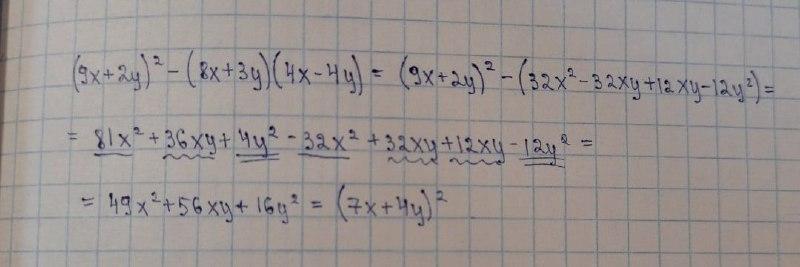 (9x+2y)² - (8x+3y)(4x-4y) = (9x+2y)² - (32x² - 32xy + 12xy - 12y²) =
= 81x² + 36xy + 4y² - 32x² + 32xy + 12xy - 12y² =
= 49x² + 56xy + 16y² = (7x+4y)²